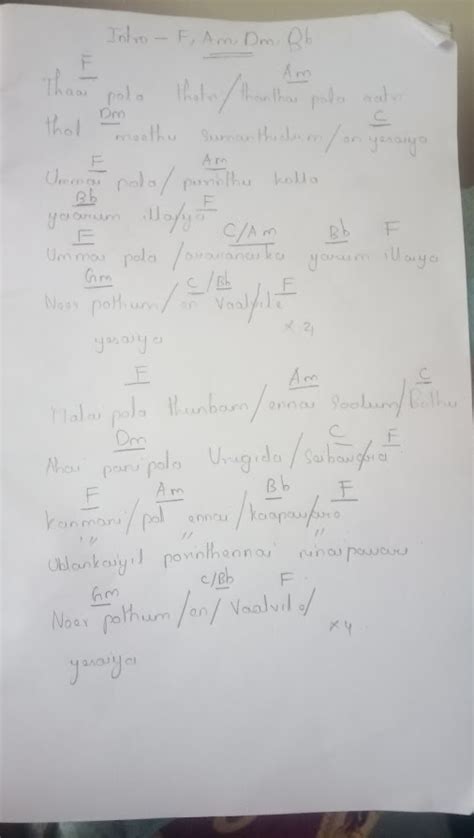 Intro - F, Am, Dm, Bb
F Am
Thaai pola thetri/thanthai pola aatri
Dm C
thol meethu sumanthidum/en yesaiya
F Am
Ummai pola/purinthu kolla
Bb F
yaarum illa/ya
F C/Am Bb F
Ummai pola/aravanaikka yarum illaiya
Gm C/Bb F
Neer pothum/en Vaalvile
x 2
yesaiya
F Am C
Malai pola thunbam/ennai soolum/Bothu
Dm C F
Athai pani pola Urugida/seibavare
F Am Bb F
Kanmani/pol ennai/kaapavare
" "
Ullankaiyil porinthennai ninaipavare
Gm C/Bb F
Neer pothum/en/Vaalvil e/
x 4
yesaiya